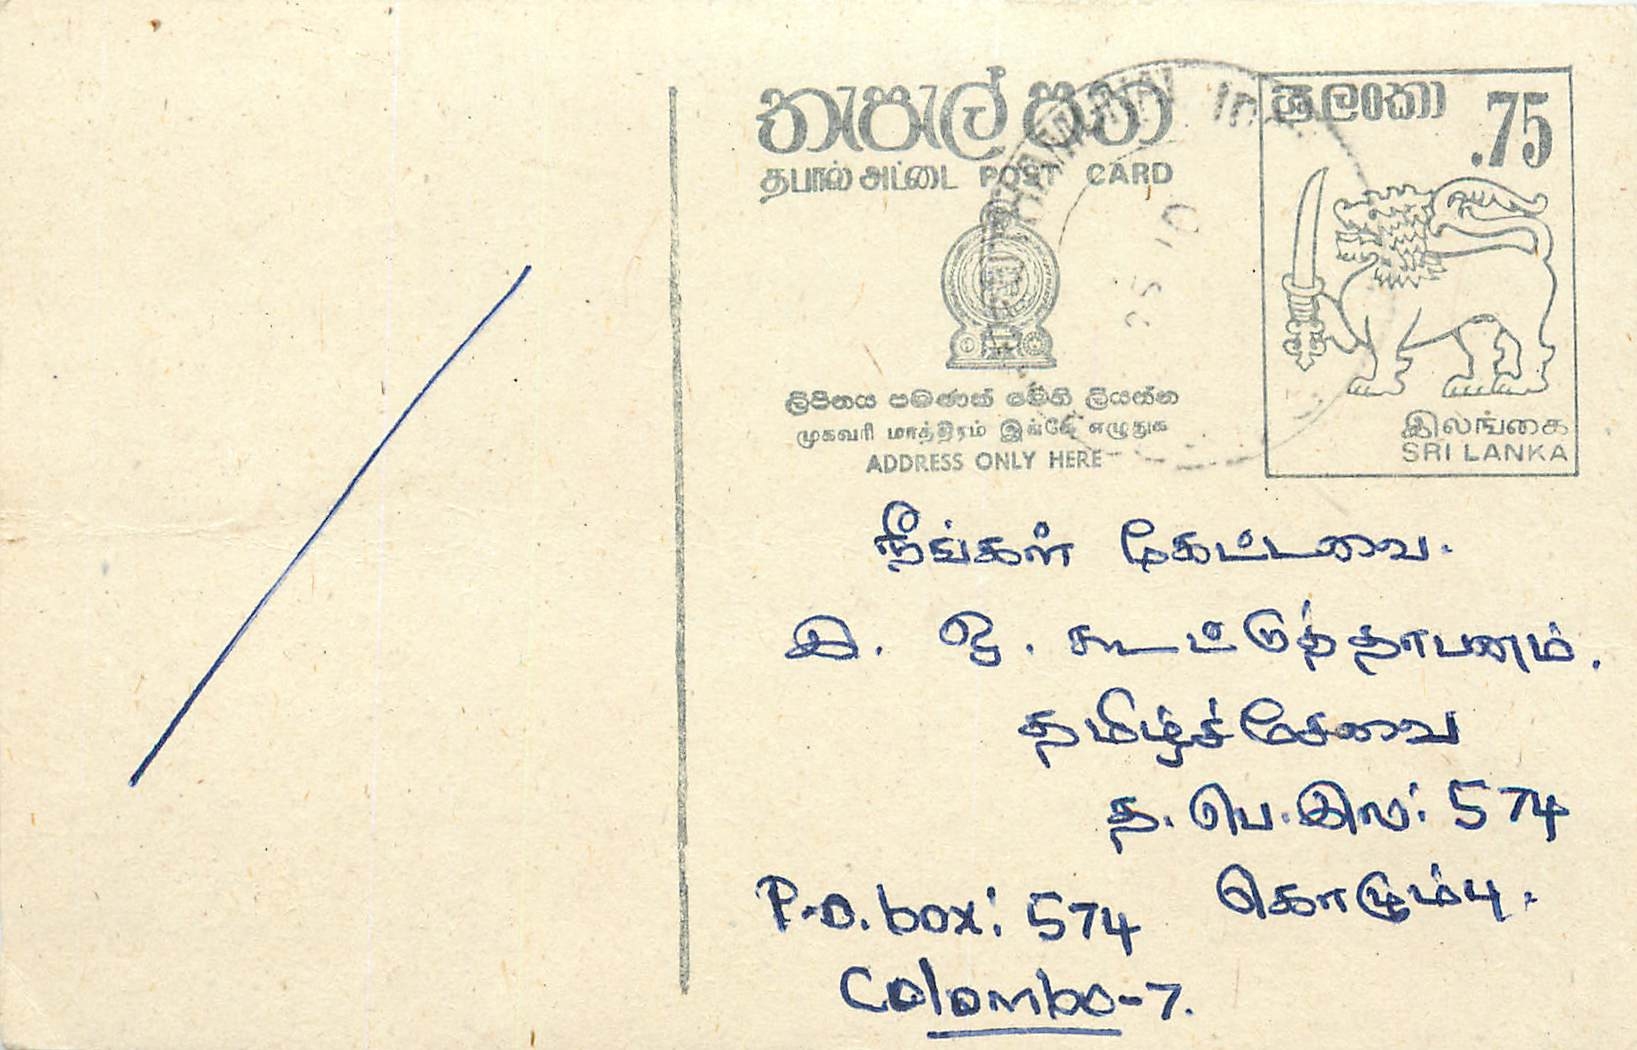 තැපැල් පත
தபால் அட்டை POST CARD
ශ්‍රී ලංකා
.75
ලිපිනය පමණක් මෙහි ලියන්න
முகவரி மாத்திரம் இங்கே எழுதுக
ADDRESS ONLY HERE
இலங்கை
SRI LANKA
நீங்கள் கேட்டவை.
இ. ஒ. கூட்டுத்தாபனம்.
தமிழ்ச்சேவை
த. பெ. இல: 574
கொழும்பு.
P.O. box: 574
Colombo-7.